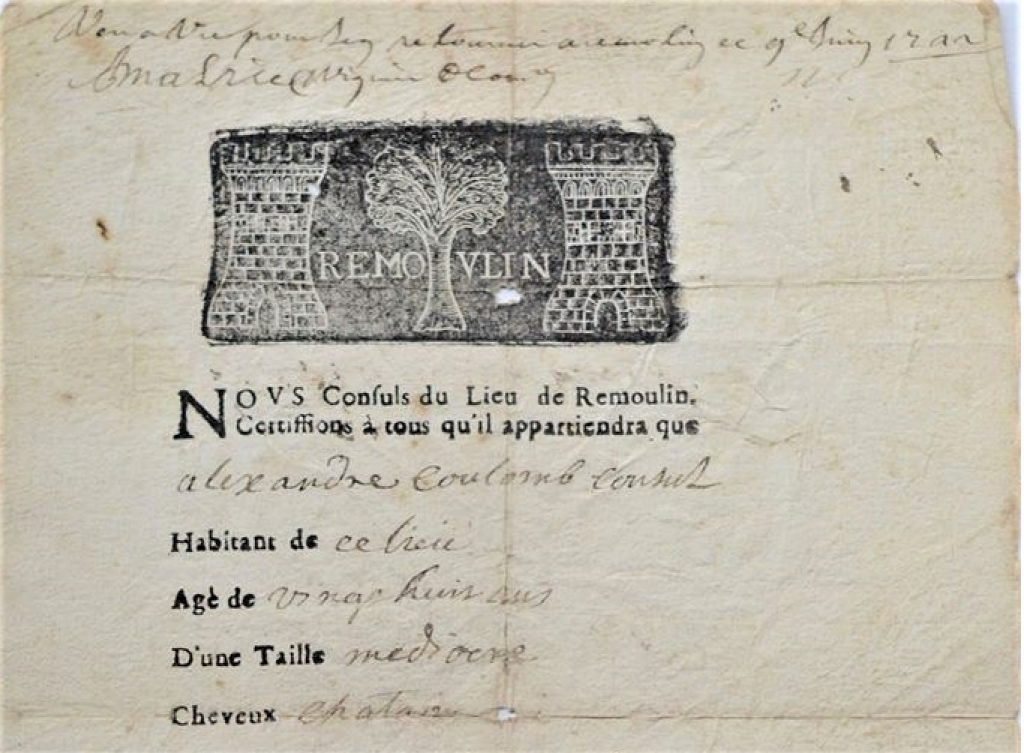 pour retourner a ce 9e Juin
REMOVLIN
NOVS Conſuls du Lieu de Remoulin,
Certiffions à tous qu'il appartiendra que
alexandre coulomb consul
Habitant de ce lieu
Agè de vingt huit ans
D'une Taille mediocre
Cheveux chatain